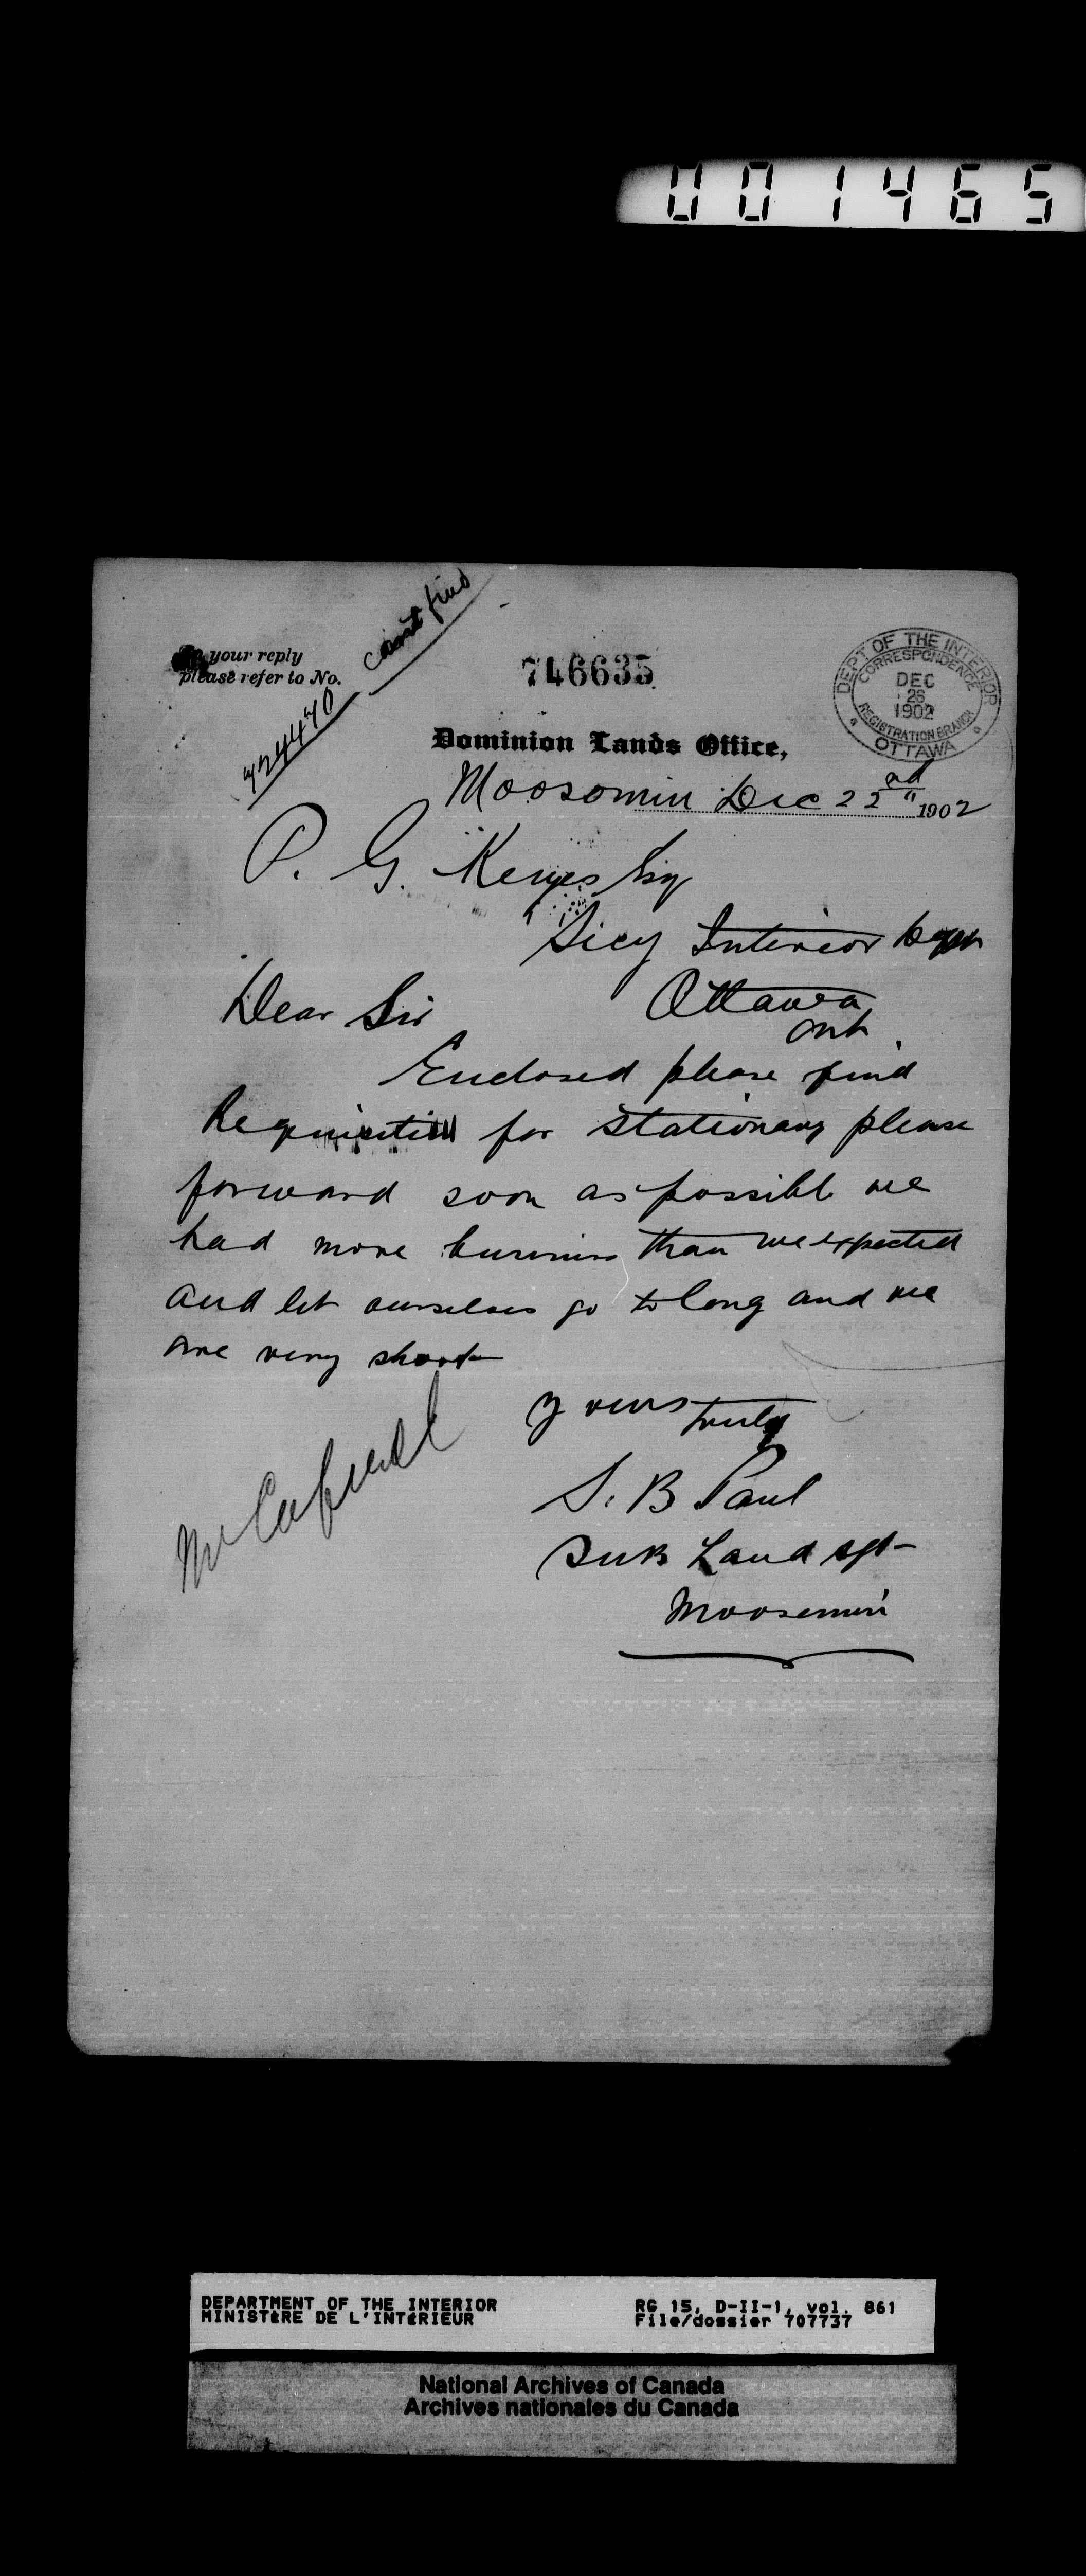 001465
In your reply
please refer to No.
724470
cant find
746635
DEP'T OF THE INTERIOR
CORRESPONDENCE
DEC
26
1902
REGISTRATION BRANCH
OTTAWA
Dominion Lands Office,
Moosomin Dec 22nd 1902
P. G. Keyes Esq
Secy Interior Dept
Ottawa
Ont
Dear Sir
Enclosed please find
Requisition for Stationary please
forward soon as possible we
had more business than we expected
and let ourselves go to long and we
are very short
Yours truly
S. B Paul
Sub Land Agt
Moosomin
Mr
DEPARTMENT OF THE INTERIOR
MINISTÈRE DE L'INTÉRIEUR
RG 15, D-II-1, vol. 861
File/dossier 707737
National Archives of Canada
Archives nationales du Canada